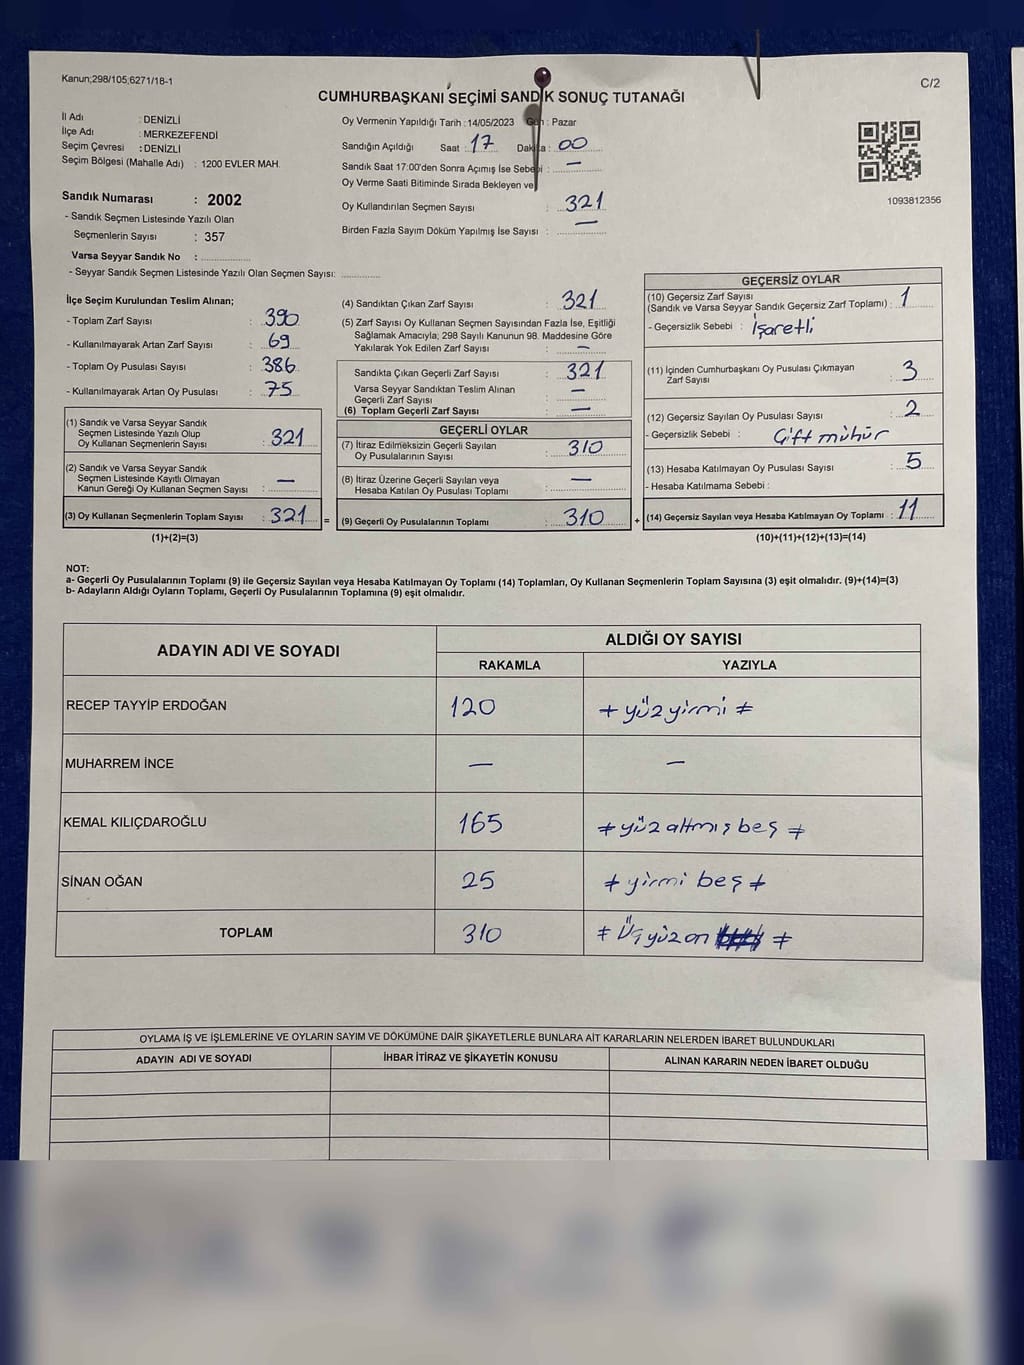 Kanun;298/105;6271/18-1
C/2
CUMHURBAŞKANI SEÇİMİ SANDIK SONUÇ TUTANAĞI
İl Adı : DENİZLİ
İlçe Adı : MERKEZEFENDİ
Seçim Çevresi : DENİZLİ
Seçim Bölgesi (Mahalle Adı) : 1200 EVLER MAH.
Sandık Numarası : 2002
- Sandık Seçmen Listesinde Yazılı Olan
Seçmenlerin Sayısı : 357
Varsa Seyyar Sandık No :
- Seyyar Sandık Seçmen Listesinde Yazılı Olan Seçmen Sayısı:
Oy Vermenin Yapıldığı Tarih :14/05/2023 Gün : Pazar
Sandığın Açıldığı Saat : 17 Dakika : 00
Sandık Saat 17:00'den Sonra Açımış İse Sebebi : —
Oy Verme Saati Bitiminde Sırada Bekleyen ve
Oy Kullandırılan Seçmen Sayısı : 321
Birden Fazla Sayım Döküm Yapılmış İse Sayısı : —
1093812356
İlçe Seçim Kurulundan Teslim Alınan;
- Toplam Zarf Sayısı : 390
- Kullanılmayarak Artan Zarf Sayısı : 69
- Toplam Oy Pusulası Sayısı : 386
- Kullanılmayarak Artan Oy Pusulası : 75
(1) Sandık ve Varsa Seyyar Sandık
Seçmen Listesinde Yazılı Olup
Oy Kullanan Seçmenlerin Sayısı : 321
(2) Sandık ve Varsa Seyyar Sandık
Seçmen Listesinde Kayıtlı Olmayan
Kanun Gereği Oy Kullanan Seçmen Sayısı : —
(3) Oy Kullanan Seçmenlerin Toplam Sayısı : 321 =
(1)+(2)=(3)
(4) Sandıktan Çıkan Zarf Sayısı : 321
(5) Zarf Sayısı Oy Kullanan Seçmen Sayısından Fazla İse, Eşitliği
Sağlamak Amacıyla; 298 Sayılı Kanunun 98. Maddesine Göre
Yakılarak Yok Edilen Zarf Sayısı : —
Sandıkta Çıkan Geçerli Zarf Sayısı : 321
Varsa Seyyar Sandıktan Teslim Alınan
Geçerli Zarf Sayısı : —
(6) Toplam Geçerli Zarf Sayısı : —
GEÇERLİ OYLAR
(7) İtiraz Edilmeksizin Geçerli Sayılan
Oy Pusulalarının Sayısı : 310
(8) İtiraz Üzerine Geçerli Sayılan veya
Hesaba Katılan Oy Pusulası Toplamı : —
(9) Geçerli Oy Pusulalarının Toplamı : 310 +
GEÇERSİZ OYLAR
(10) Geçersiz Zarf Sayısı
(Sandık ve Varsa Seyyar Sandık Geçersiz Zarf Toplamı) : 1
- Geçersizlik Sebebi : İşaretli
(11) İçinden Cumhurbaşkanı Oy Pusulası Çıkmayan
Zarf Sayısı : 3
(12) Geçersiz Sayılan Oy Pusulası Sayısı : 2
- Geçersizlik Sebebi : Çift mühür
(13) Hesaba Katılmayan Oy Pusulası Sayısı : 5
- Hesaba Katılmama Sebebi :
(14) Geçersiz Sayılan veya Hesaba Katılmayan Oy Toplamı : 11
(10)+(11)+(12)+(13)=(14)
NOT:
a- Geçerli Oy Pusulalarının Toplamı (9) ile Geçersiz Sayılan veya Hesaba Katılmayan Oy Toplamı (14) Toplamları, Oy Kullanan Seçmenlerin Toplam Sayısına (3) eşit olmalıdır. (9)+(14)=(3)
b- Adayların Aldığı Oyların Toplamı, Geçerli Oy Pusulalarının Toplamına (9) eşit olmalıdır.
ADAYIN ADI VE SOYADI
ALDIĞI OY SAYISI
RAKAMLA YAZIYLA
RECEP TAYYİP ERDOĞAN 120 ≠ yüz yirmi ≠
MUHARREM İNCE — —
KEMAL KILIÇDAROĞLU 165 ≠ yüz altmış beş ≠
SİNAN OĞAN 25 ≠ yirmi beş ≠
TOPLAM 310 ≠ Üç yüz on ≠
OYLAMA İŞ VE İŞLEMLERİNE VE OYLARIN SAYIM VE DÖKÜMÜNE DAİR ŞİKAYETLERLE BUNLARA AİT KARARLARIN NELERDEN İBARET BULUNDUKLARI
ADAYIN ADI VE SOYADI İHBAR İTİRAZ VE ŞİKAYETİN KONUSU ALINAN KARARIN NEDEN İBARET OLDUĞU